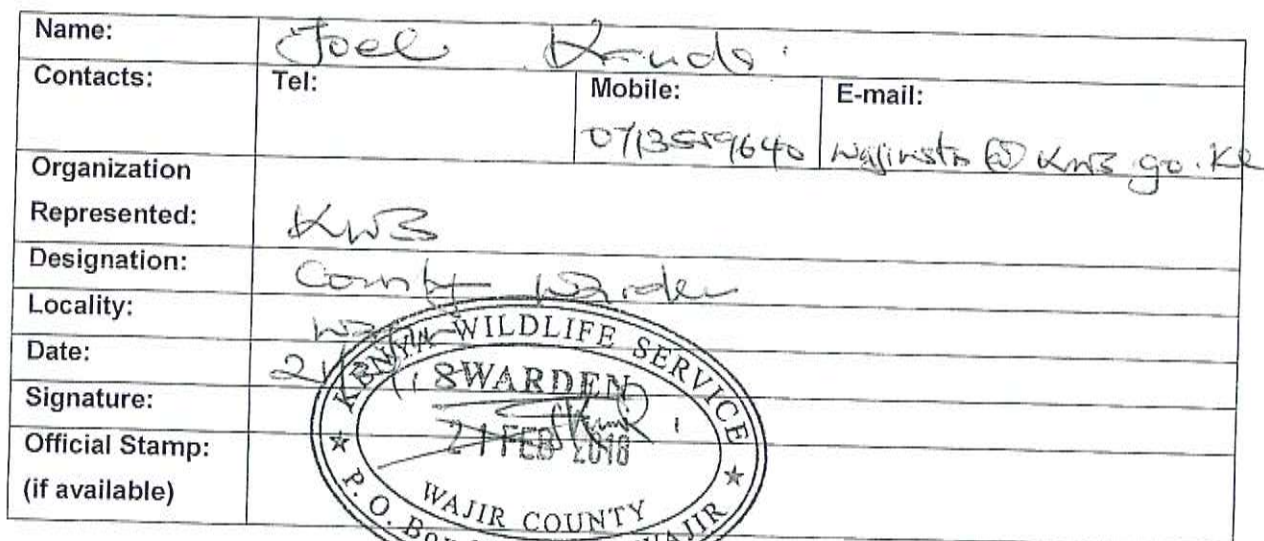 Name: Joel
Contacts: Tel: Mobile: E-mail:
0713559640 wajirstn@kws.go.ke
Organization
Represented: KWS
Designation: County Warden
Locality: Wajir
Date: 21/2/18
Signature:
Official Stamp:
(if available)
KENYA WILDLIFE SERVICE
WARDEN
21 FEB 2018
WAJIR COUNTY
P. O. Box WAJIR